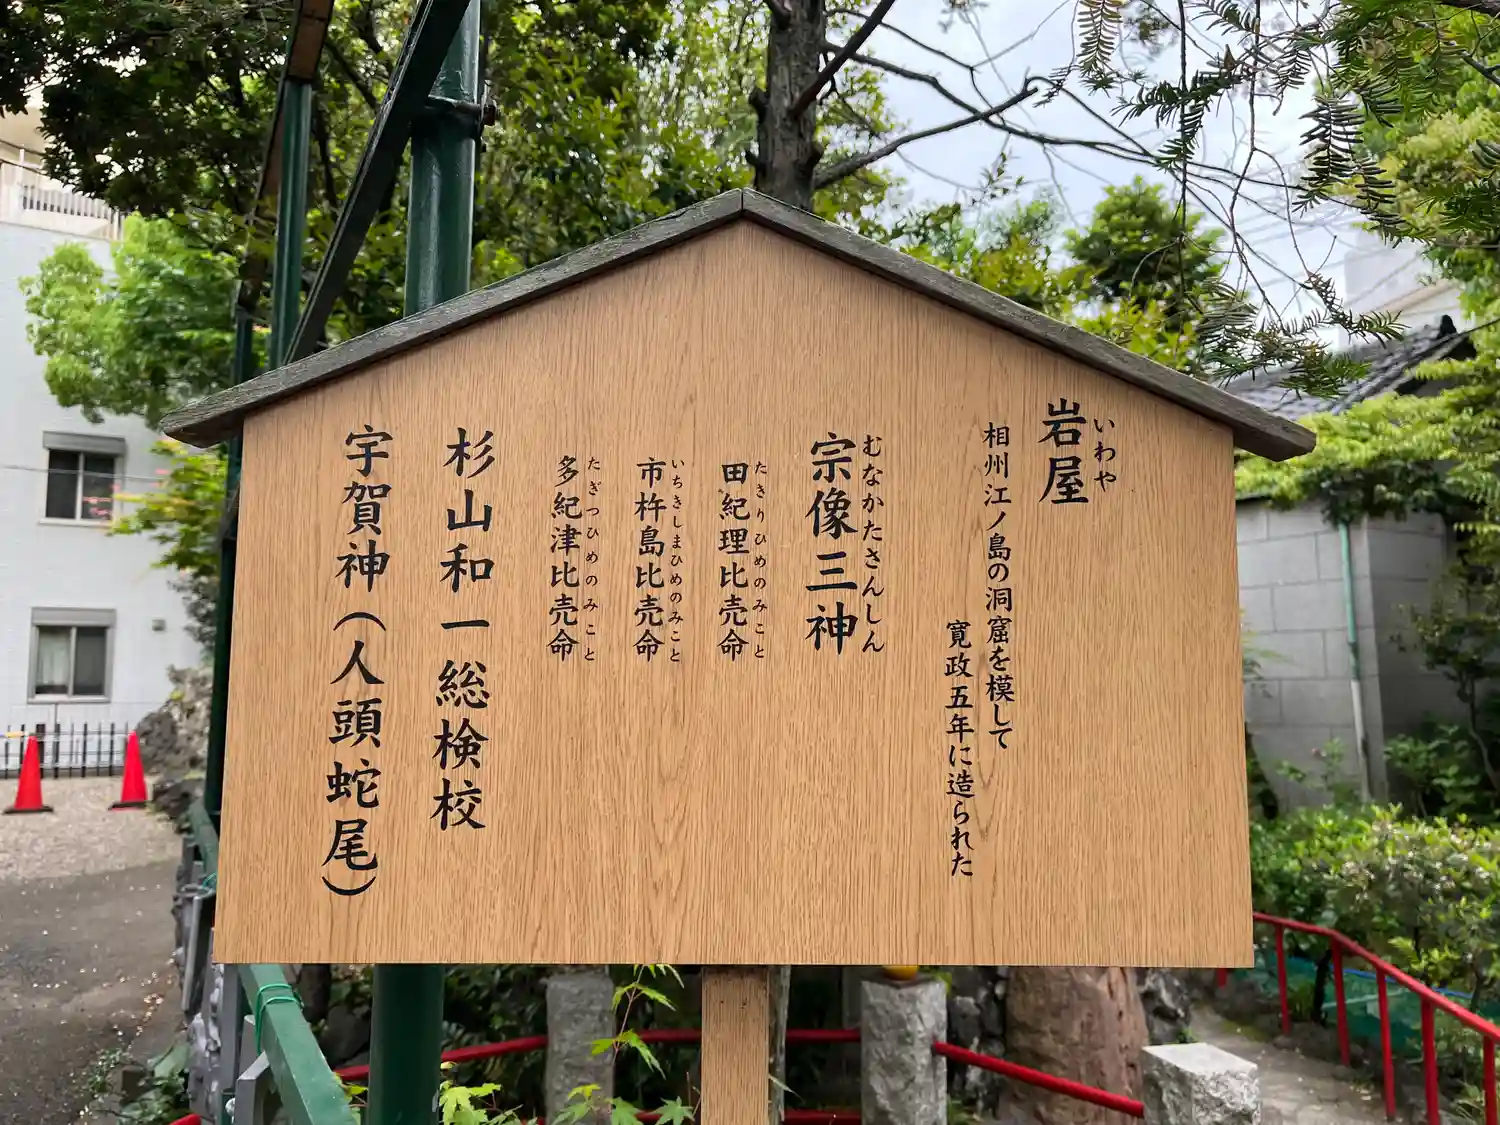 岩屋
いわや
相州江ノ島の洞窟を模して
寛政五年に造られた
宗像三神
むなかたさんしん
田紀理比売命
たきりひめのみこと
市杵島比売命
いちきしまひめのみこと
多紀津比売命
たぎつひめのみこと
杉山和一総検校
宇賀神（人頭蛇尾）